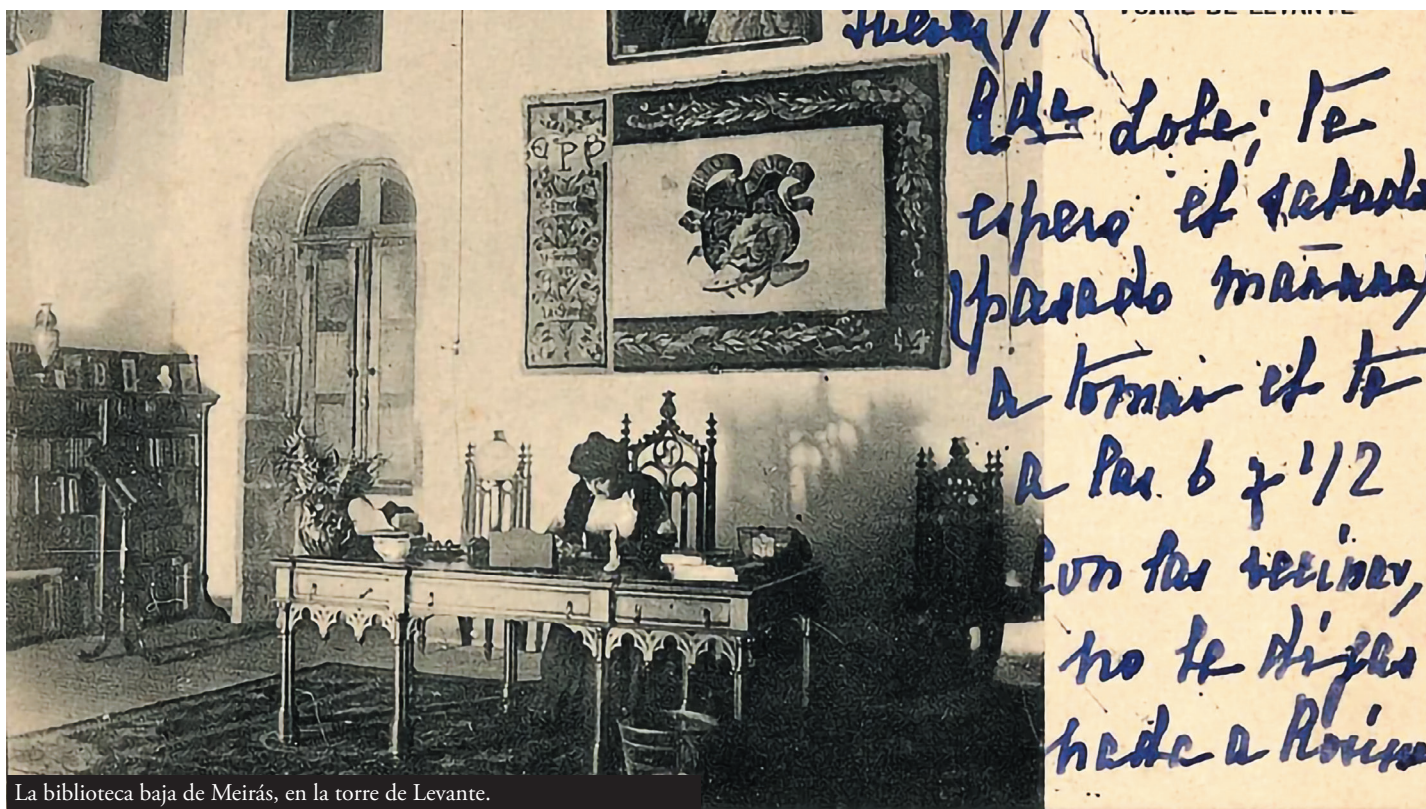 TORRE DE LEVANTE
Jueves 11
Qda Lola; te
espero el sabado
(pasado mañana)
a tomar el te
a las 6 y 1/2
con las vecinas,
no le digas
nada a
EPP
La biblioteca baja de Meirás, en la torre de Levante.